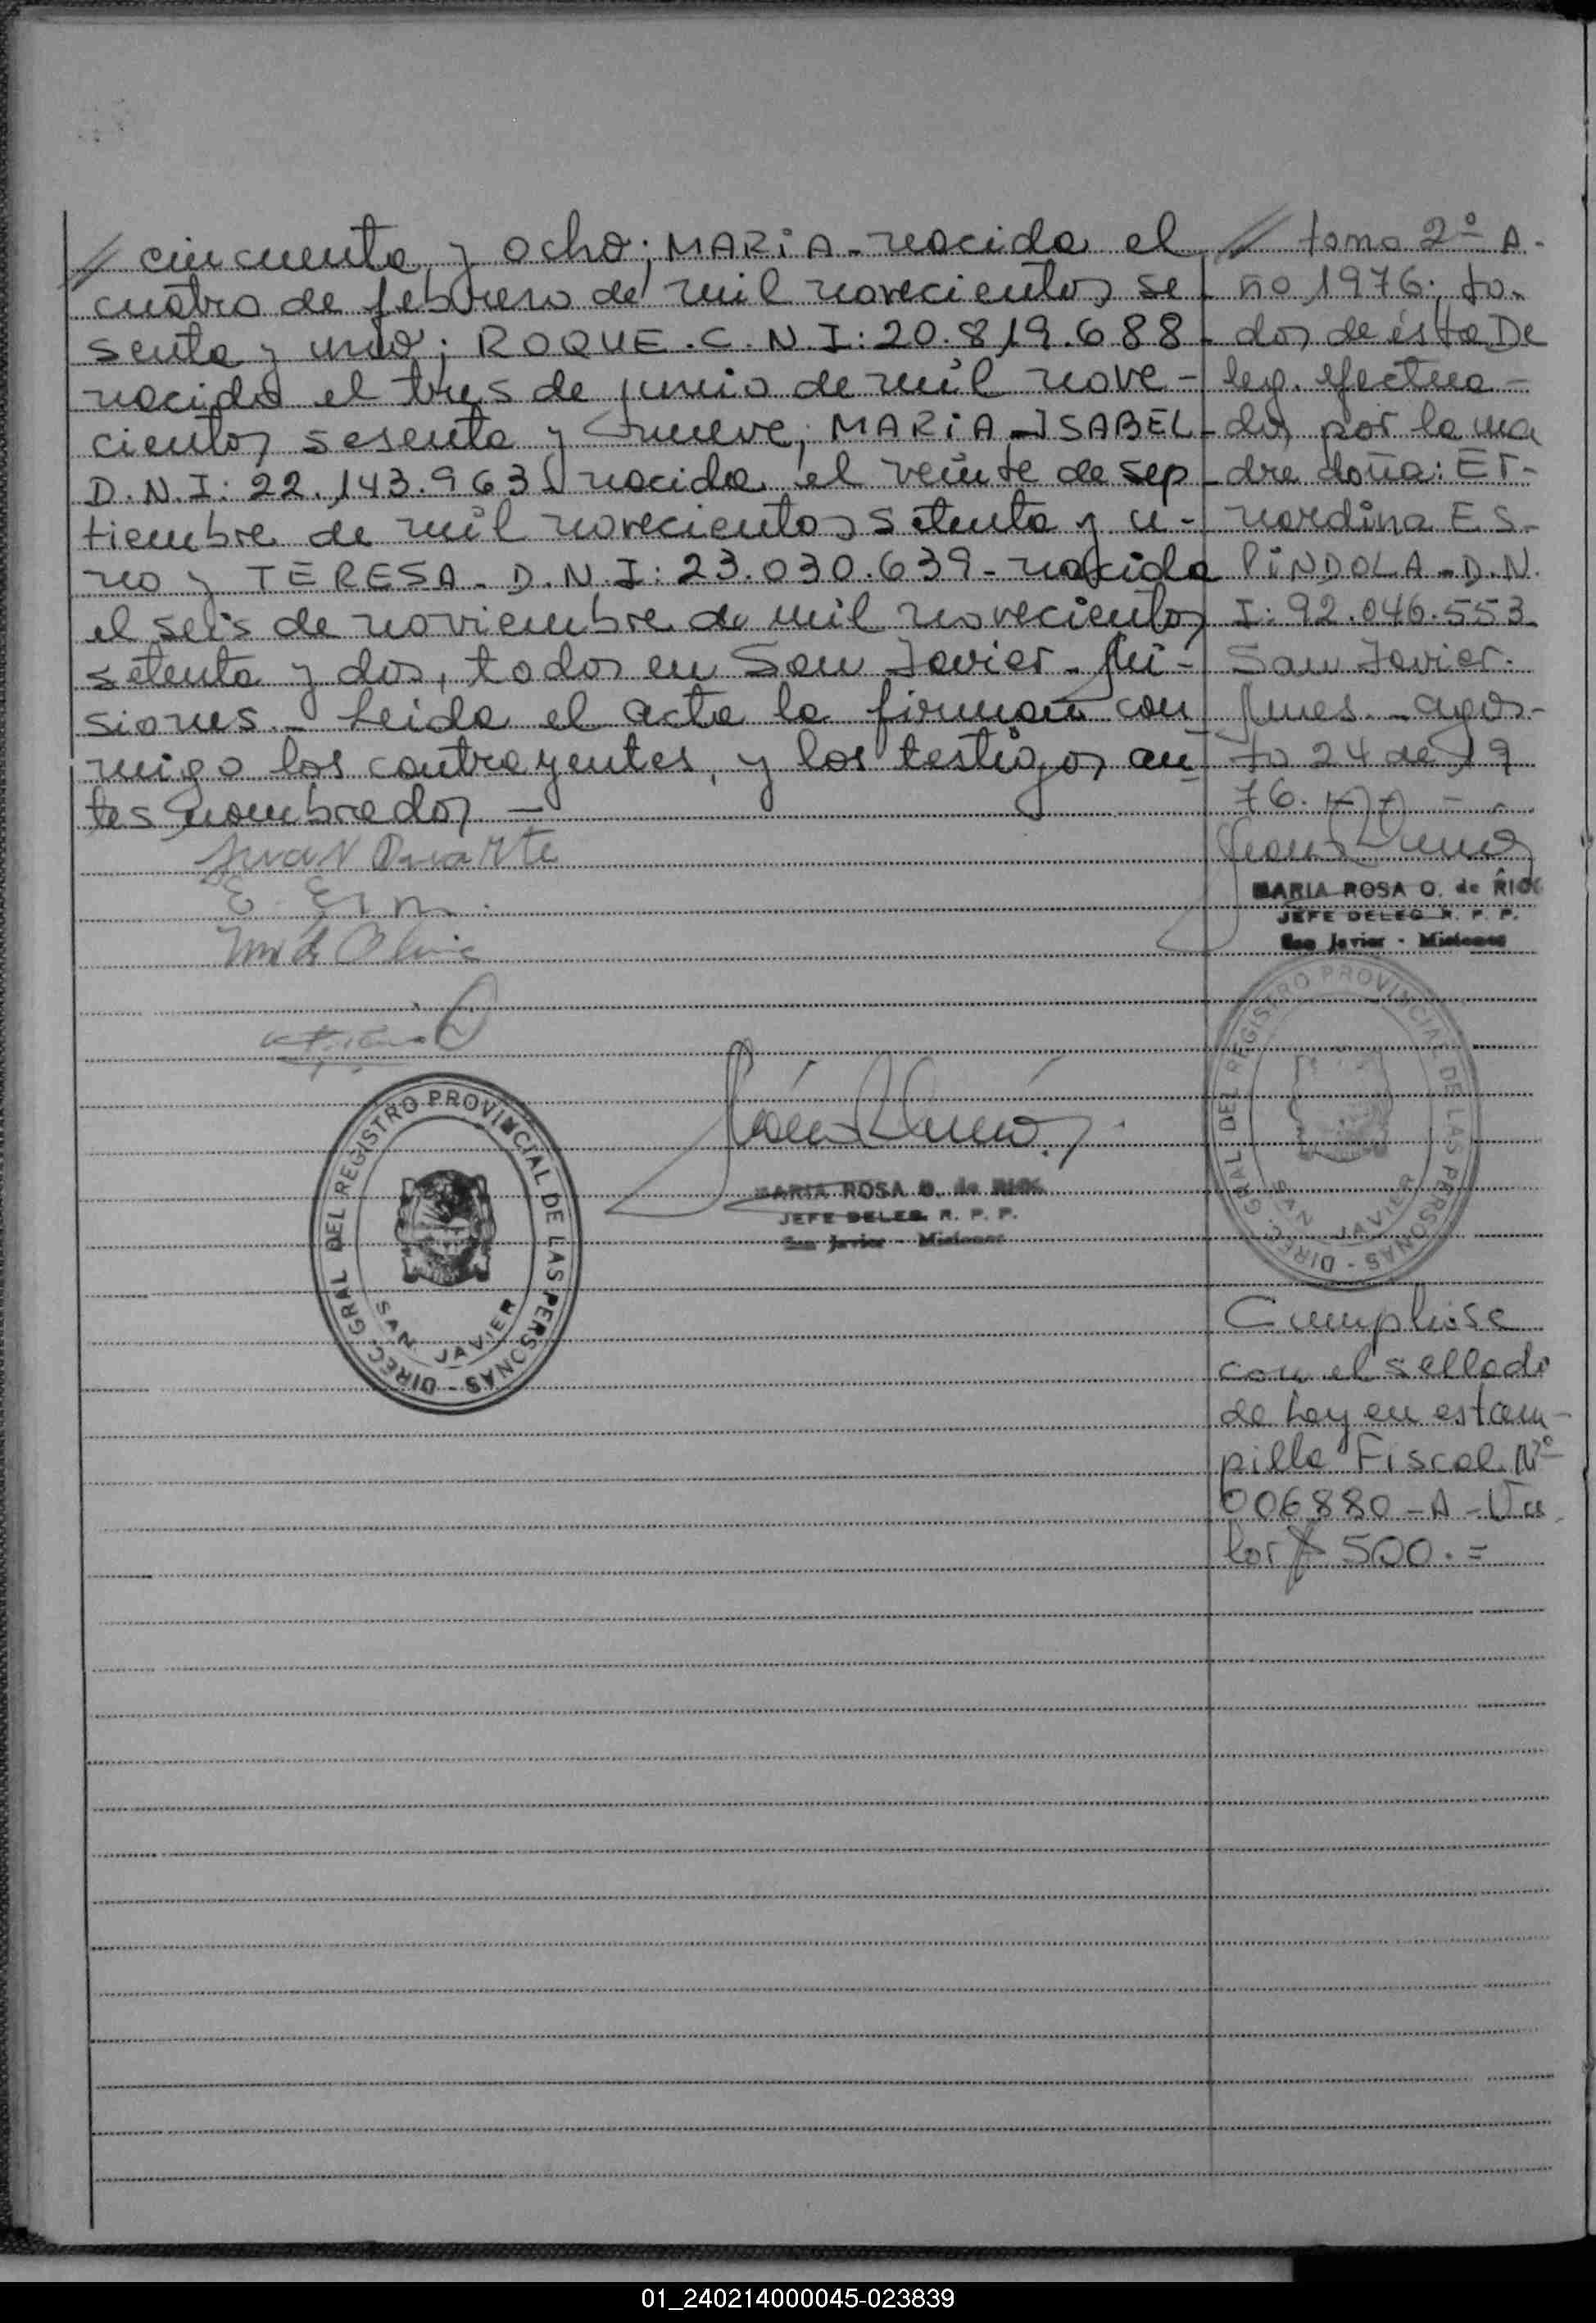 // cincuenta y ocho; MARIA - nacida el
cuatro de febrero de mil novecientos se
senta y uno; ROQUE. C. N. I: 20.819.688
nacido el tres de junio de mil nove-
cientos sesenta y nueve; MARIA ISABEL
D.N.I: 22.143.963 nacida el veinte de sep
tiembre de mil novecientos setenta y u-
no y TERESA - D.N.I: 23.030.639 - nacida
el seis de noviembre de mil novecientos
setenta y dos, todos en San Javier - Mi-
siones. - Leida el acta la firman con
migo los contrayentes, y los testigos an
tes nombrados —
Juan Duarte
MARIA ROSA O. de RIOS
JEFE DELEG. R. P. P.
San Javier - Misiones
DIREC. GRAL DEL REGISTRO PROVINCIAL DE LAS PERSONAS -
SAN JAVIER
// tomo 2º A-
ño 1976; to-
dos de ésta De
leg. efectua-
dos por la ma
dre doña: ET-
nardina ES-
PINDOLA - D.N.
I: 92.046.553
San Javier.
Mnes. - agos-
to 24 de 19
76.
MARIA ROSA O. de RIOS
JEFE DELEG. R. P. P.
San Javier - Misiones
DIREC. GRAL DEL REGISTRO PROVINCIAL DE LAS PERSONAS -
SAN JAVIER
Cumplióse
con el sellado
de Ley en estam-
pilla Fiscal Nº
006880 - A - Va
lor $ 500. =
01_240214000045-023839